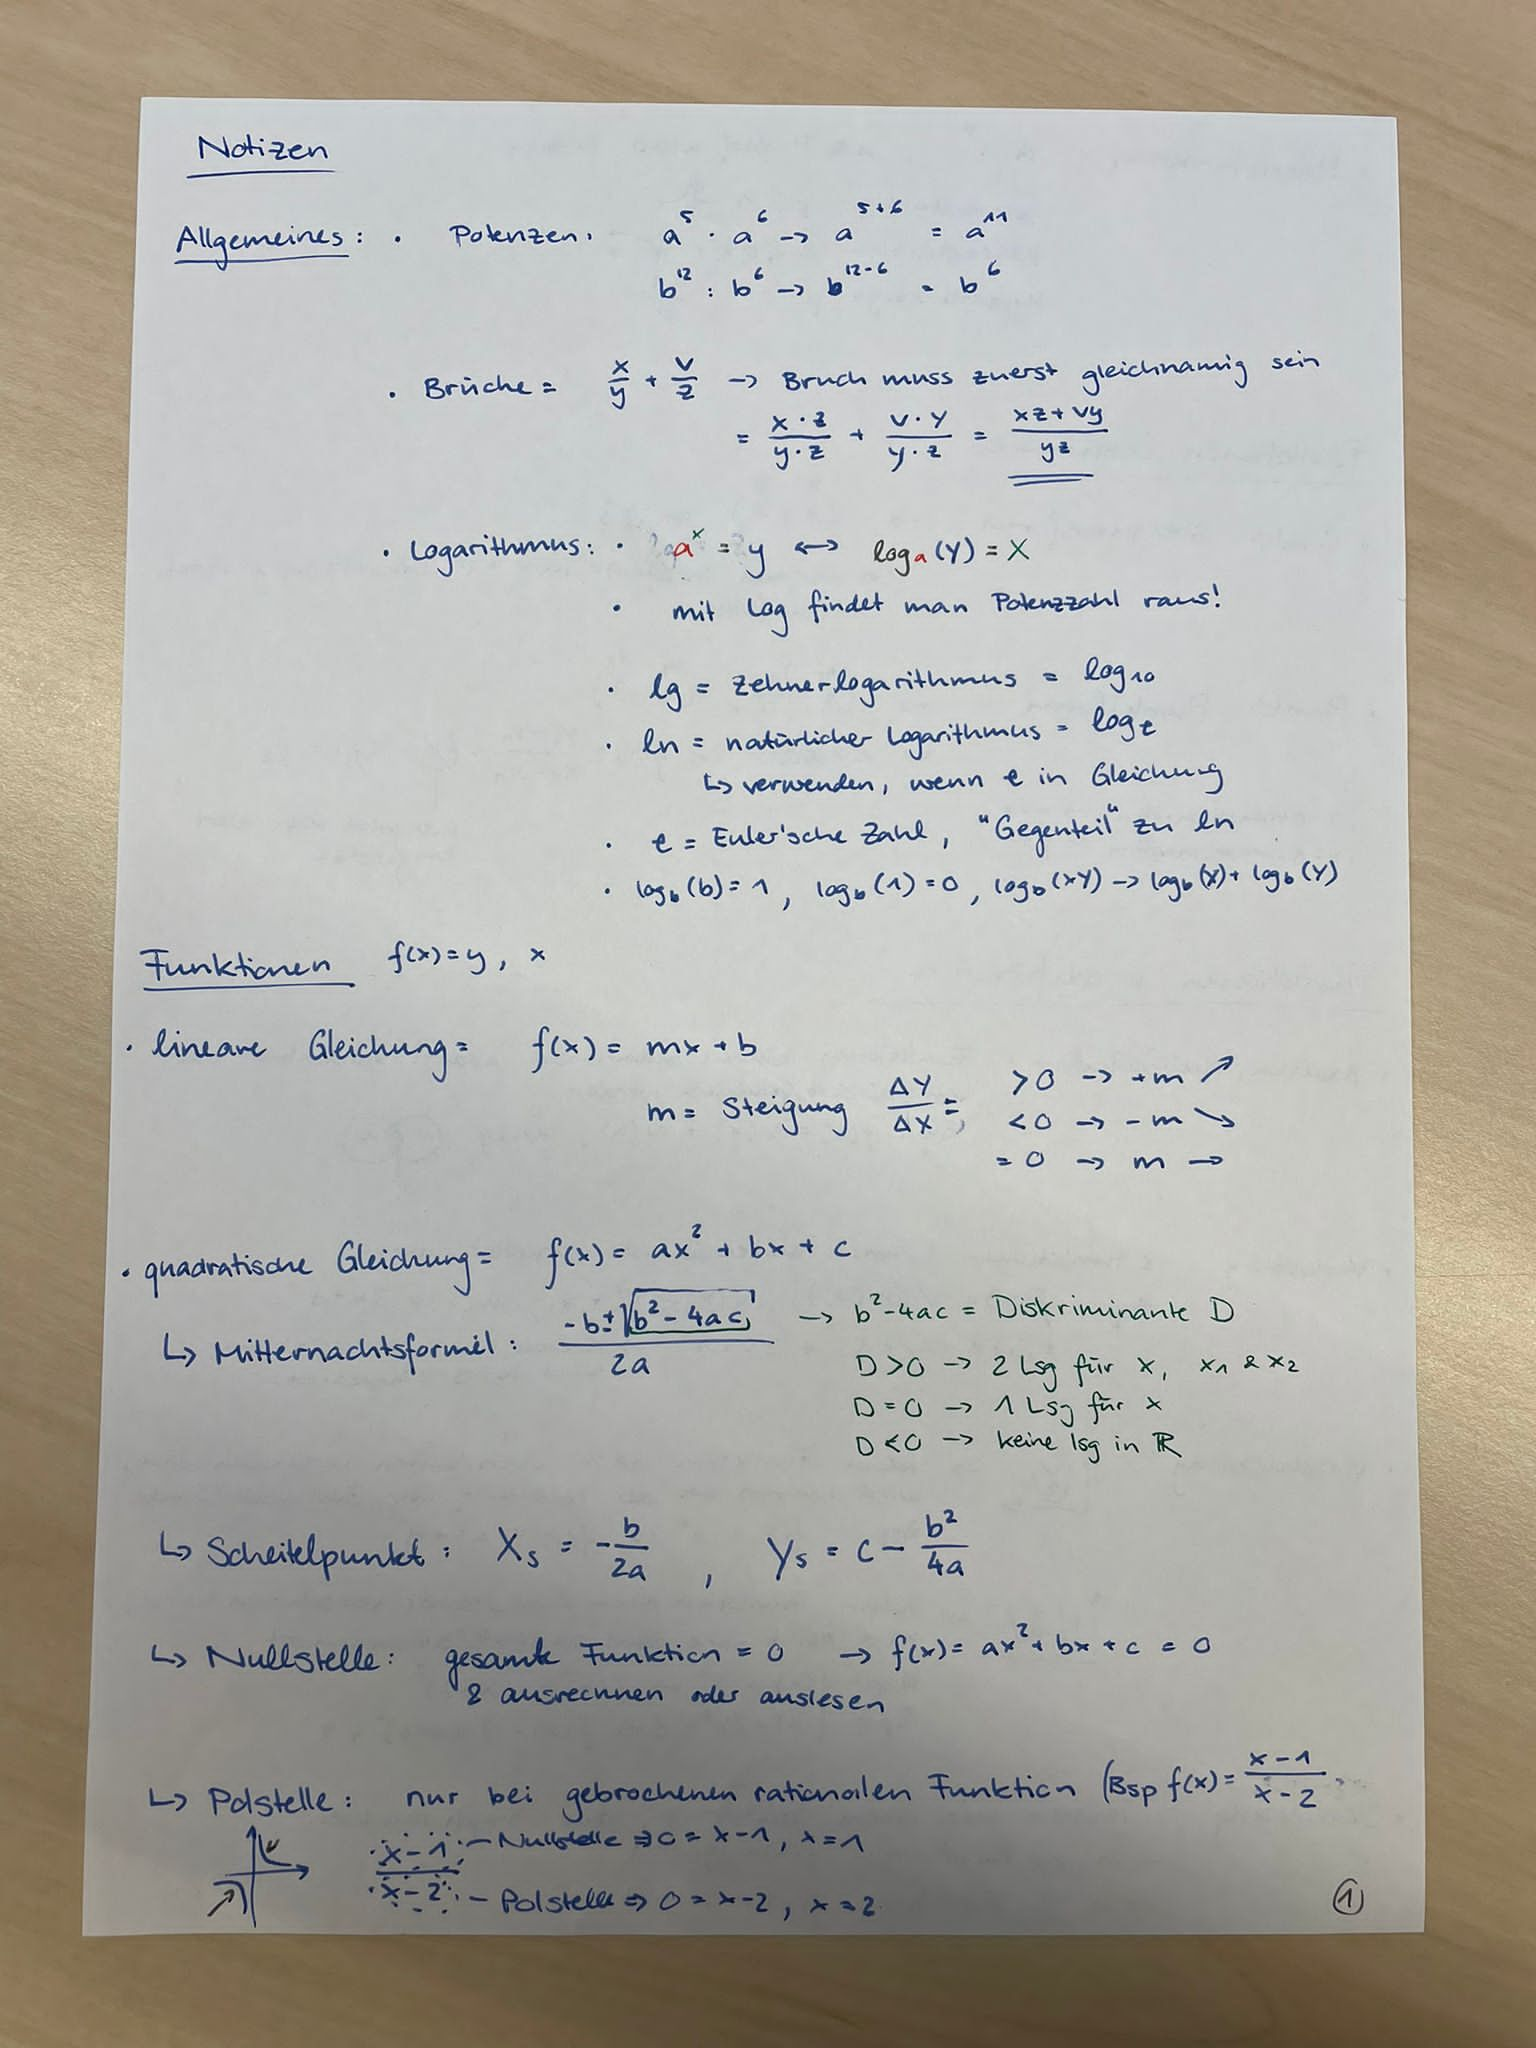 Notizen
Allgemeines: • Potenzen: a⁵ · a⁶ → a⁵⁺⁶ = a¹¹
b¹² : b⁶ → b¹²⁻⁶ = b⁶
• Brüche = x/y + v/z → Bruch muss zuerst gleichnamig sein
= x·z/y·z + v·y/y·z = xz+vy/yz
• Logarithmus: • aˣ = y ↔ logₐ(y) = x
• mit Log findet man Potenzzahl raus!
• lg = Zehnerlogarithmus = log₁₀
• ln = natürlicher Logarithmus = logₑ
↳ verwenden, wenn e in Gleichung
• e = Euler'sche Zahl, "Gegenteil" zu ln
• log_b(b) = 1, log_b(1) = 0, log_b(xy) → log_b(x) + log_b(y)
Funktionen f(x) = y, x
• lineare Gleichung = f(x) = mx + b
m = Steigung ΔY/ΔX = >0 → +m ↗
<0 → -m ↘
=0 → m →
• quadratische Gleichung = f(x) = ax² + bx + c
↳ Mitternachtsformel: -b±√(b²-4ac)/2a → b²-4ac = Diskriminante D
D>0 → 2 Lsg für x, x₁ & x₂
D=0 → 1 Lsg für x
D<0 → keine lsg in ℝ
↳ Scheitelpunkt: Xs = -b/2a, Ys = c - b²/4a
↳ Nullstelle: gesamte Funktion = 0 → f(x) = ax² + bx + c = 0
& ausrechnen oder auslesen
↳ Polstelle: nur bei gebrochenen rationalen Funktion (Bsp f(x) = x-1/x-2
x-1 – Nullstelle ⇒ 0 = x-1, x=1
x-2 – Polstelle ⇒ 0 = x-2, x=2
1